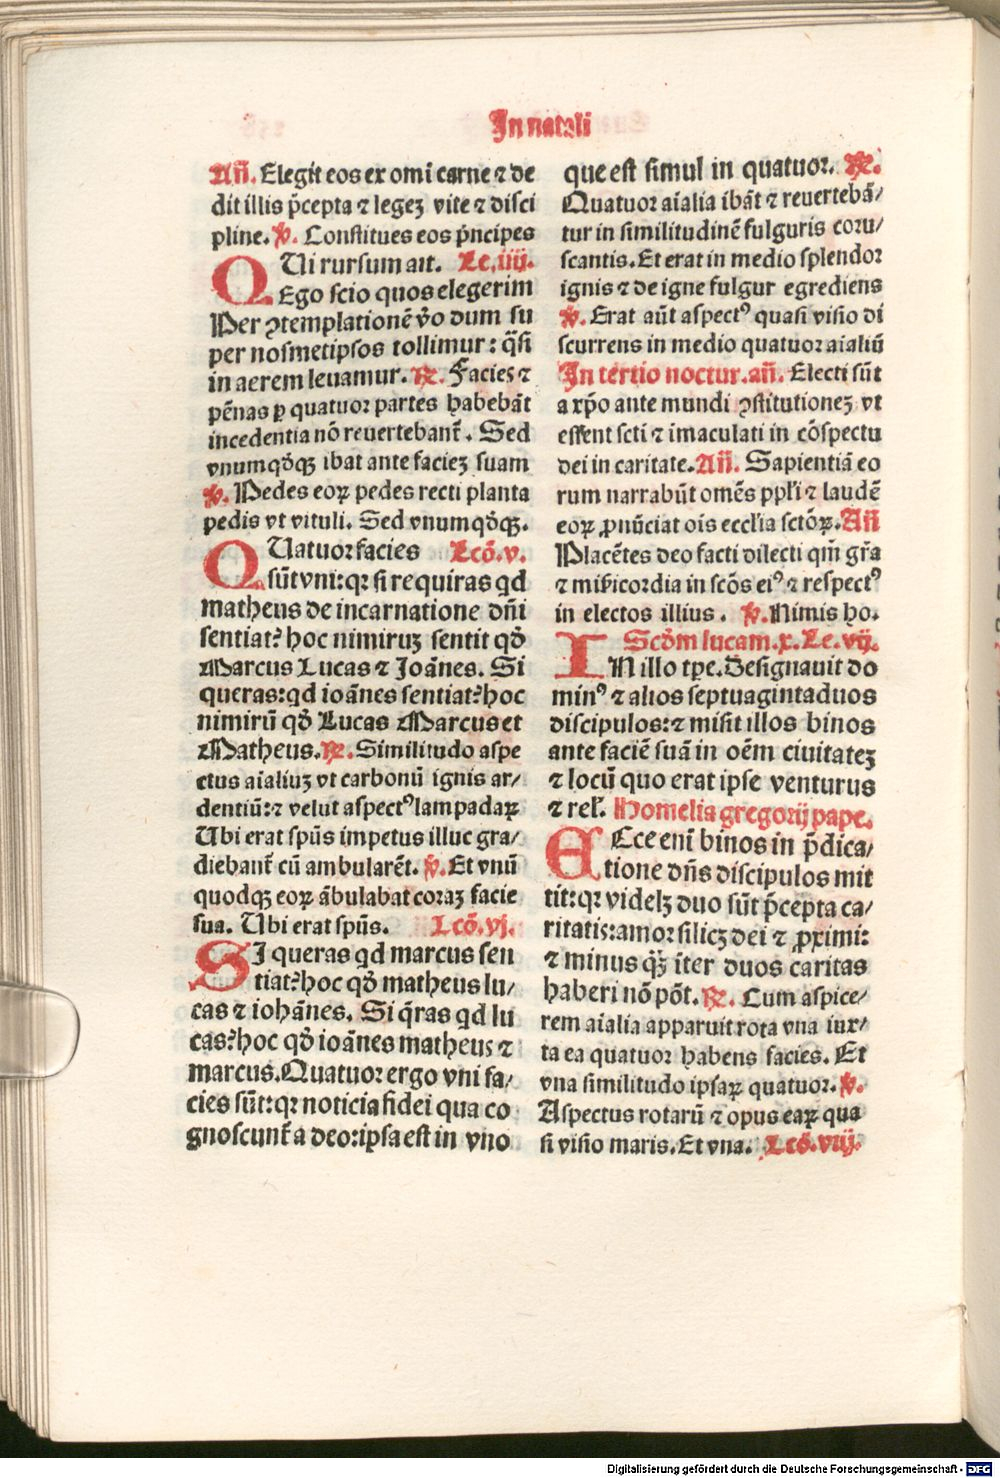 In natali
Añ. Elegit eos ex omi carne ⁊ de
dit illis p̄cepta ⁊ legeꝫ vite ⁊ disci
pline. ℣. Constitues eos pn̄cipes
QUi rursum ait. Le. iiij.
Ego scio quos elegerim
Per ꝯtemplationē v̊o dum su
per nosmetipsos tollimur: q̄si
in aerem leuamur. ℟. Facies ⁊
pēnas ꝑ quatuor partes habebāt
incedentia nō reuertebant᷑. Sed
vnumqđqꝫ ibat ante facieꝫ suam
℣. Pedes eoꝝ pedes recti planta
pedis vt vituli. Sed vnumqđqꝫ.
QUatuor facies Lcō. v.
sūt vni: qꝛ si requiras qd
matheus de incarnatione dn̄i
sentiat? hoc nimiruꝫ sentit qđ
Marcus Lucas ⁊ Joānes. Si
queras: qd ioānes sentiat? hoc
nimirū qđ Lucas Marcus et
Matheus. ℟. Similitudo aspe
ctus aialiuꝫ vt carbonū ignis ar/
dentiū: ⁊ velut aspectꝰ lampadaꝝ
Ubi erat spūs impetus illuc gra/
diebant᷑ cū ambularēt. ℣. Et vnū
quodqꝫ eoꝝ ābulabat coraꝫ facie
sua. Ubi erat spūs. Lcō. vj.
SI queras qd marcus sen
tiat? hoc qđ matheus lu/
cas ⁊ iohānes. Si q̄ras qd lu
cas? hoc qđ ioānes matheus ⁊
marcus. Quatuor ergo vni fa/
cies sūt: qꝛ noticia fidei qua co
gnoscunt᷑ a deo: ipsa est in vno
que est simul in quatuor. ℟.
Quatuor aīalia ibāt ⁊ reuertebā/
tur in similitudinē fulguris coru/
scantis. Et erat in medio splendor
ignis ⁊ de igne fulgur egrediens
℣. Erat aūt aspectꝰ quasi visio di
scurrens in medio quatuor aialiū
In tertio noctur. añ. Electi sūt
a xp̄o ante mundi ꝯstitutioneꝫ vt
essent scti ⁊ imaculati in cōspectu
dei in caritate. Añ. Sapientiā eo
rum narrabūt omēs pp̄li ⁊ laudē
eoꝝ ꝓnūciat ois eccl̄ia sctōꝝ. Añ
Placētes deo facti dilecti qm̄ gr̄a
⁊ mīcordia in scōs eiꝰ ⁊ respectꝰ
in electos illius. ℣. Nimis ho.
Scđm lucam. x. Le. vij.
IN illo tp̄e. Designauit do
minꝰ ⁊ alios septuagintaduos
discipulos: ⁊ misit illos binos
ante faciē suā in oēm ciuitateꝫ
⁊ locū quo erat ipse venturus
⁊ rel̄. Homelia gregorij pape.
ECce eni binos in p̄dica/
tione dn̄s discipulos mit
tit: qꝛ videlꝫ duo sūt p̄cepta ca/
ritatis: amor silicꝫ dei ⁊ ꝓximi:
⁊ minus qꝫ̄ iter duos caritas
haberi nō pōt. ℟. Cum aspice/
rem aialia apparuit rota vna iux/
ta ea quatuor habens facies. Et
vna similitudo ipsaꝝ quatuor. ℣.
Aspectus rotarū ⁊ opus eaꝝ qua
si visio maris. Et vna. Lcō. viij.
Digitalisierung gefördert durch die Deutsche Forschungsgemeinschaft - DFG